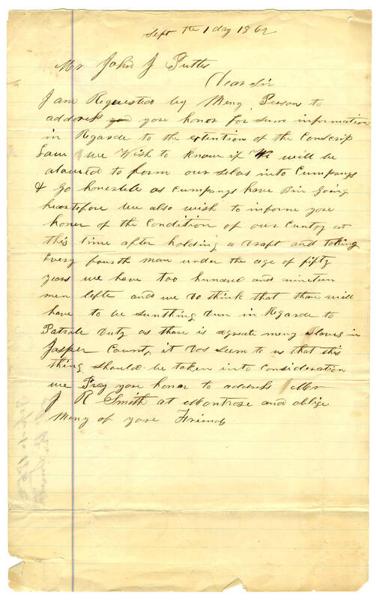 Sept the 1 day 1862
Mr John J Pettus
Dear Sir
I am Requested by Meny Person to
address you honor for sum information
in Regarde to the extention of the Conscrip
Law & we Wish to know if we will be
alawted to form our selvs into Cumpanys
& go honerable as Cumpanys have bin going
heartofore we also wish to informe your
honor of the Condition of our County at
this time after holding a draft and taking
Every fourth man under the age of fifty
years we have too hundred and nineteen
men lefte and we do think that thare will
have to be sumthing dun in Regarde to
Patrole duty as there is agreate meny Slaves in
Jasper County it dos seem to us that this
thing should be taken into Consideration
we Pray your honor to address Mr
J R Smith at Montrose and oblige
Meny of your Friends